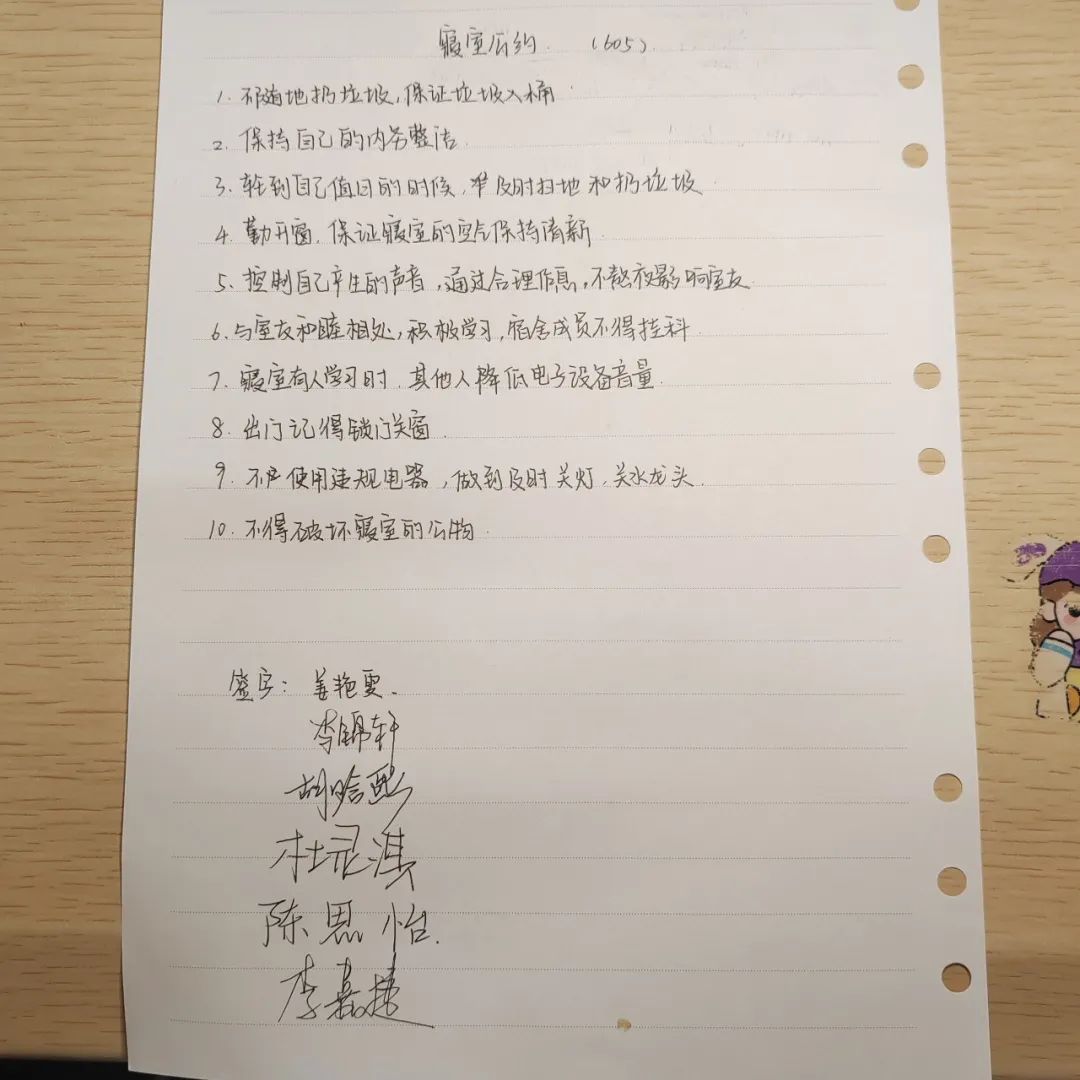 寝室公约 (605)
1. 不随地扔垃圾,保证垃圾入桶
2. 保持自己的内务整洁.
3. 轮到自己值日的时候,要及时扫地和扔垃圾
4. 勤开窗,保证寝室的空气保持清新
5. 控制自己产生的声音,通过合理作息,不熬夜影响室友
6. 与室友和睦相处,积极学习,宿舍成员不得挂科
7. 寝室有人学习时,其他人降低电子设备音量
8. 出门记得锁门关窗
9. 不使用违规电器,做到及时关灯,关水龙头.
10. 不得破坏寝室的公物
签字: 姜艳雯.
李锦轩
胡晗熙
杜灵淇
陈思怡.
李嘉捷